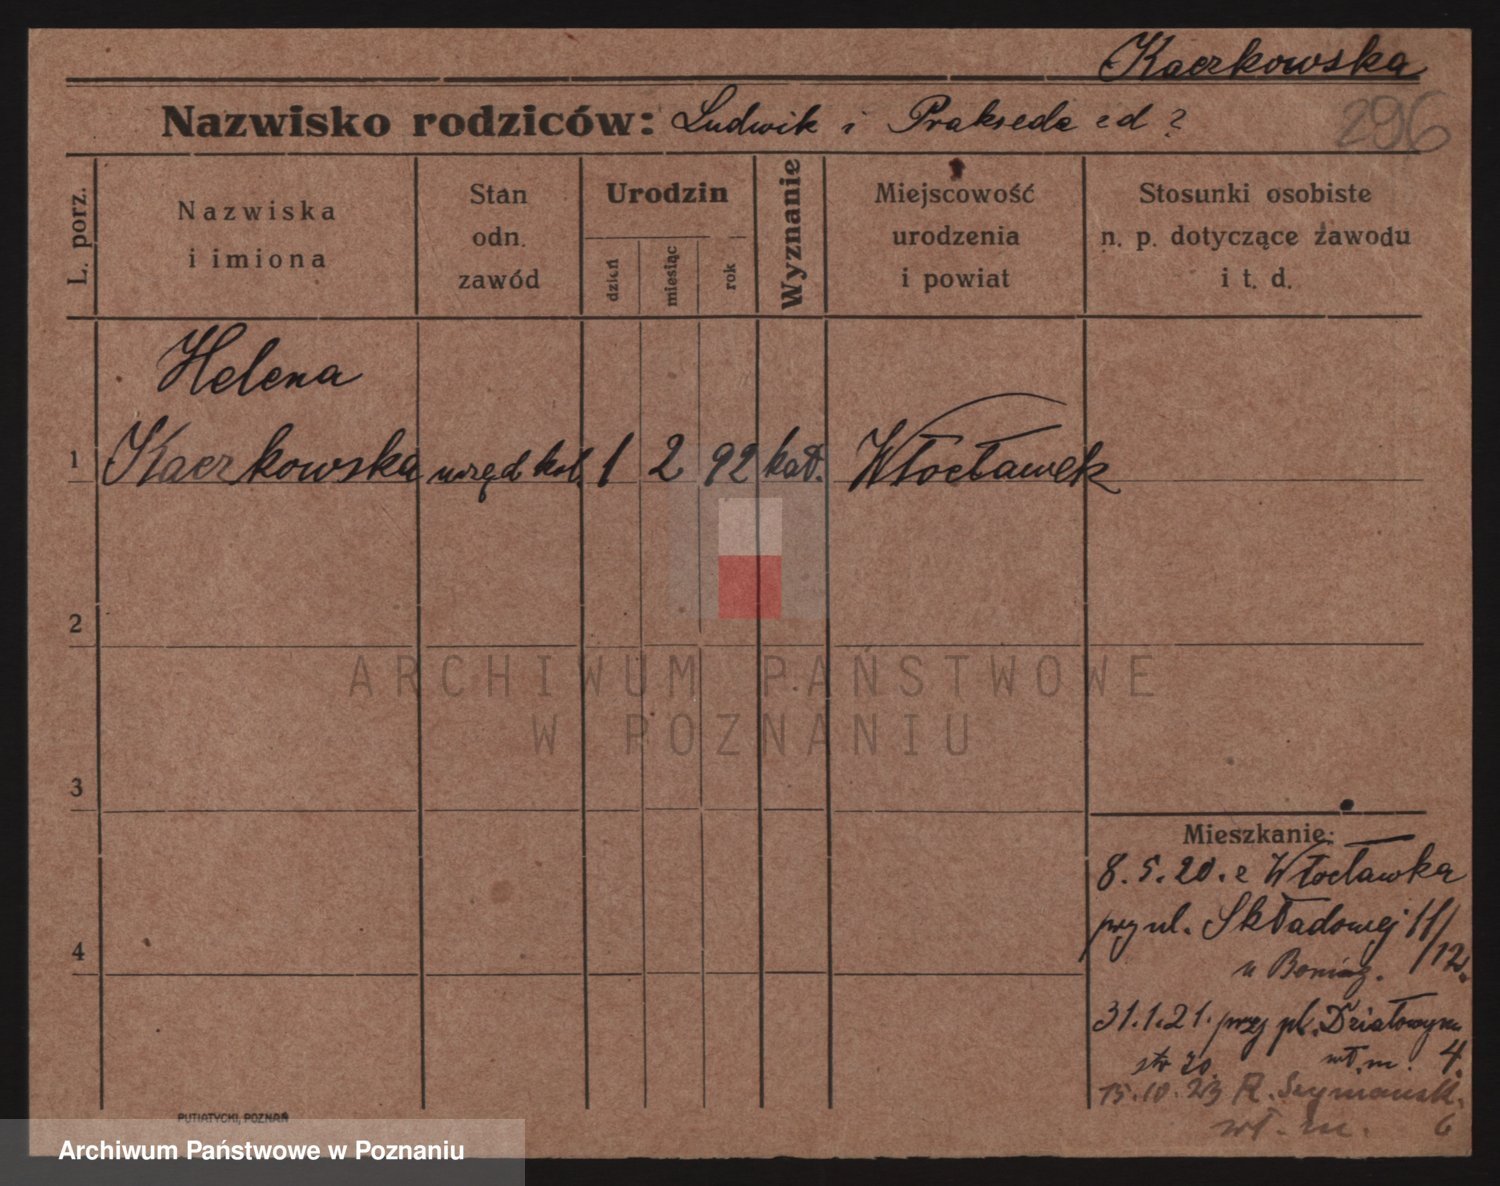 Kaczkowska
Nazwisko rodziców: Ludwik i Prakseda cd ?
296
L. porz.
Nazwiska
i imiona
Stan
odn.
zawód
Urodzin
dzień
miesiąc
rok
Wyznanie
Miejscowość
urodzenia
i powiat
Stosunki osobiste
n. p. dotyczące zawodu
i t. d.
Helena
1 Kaczkowska urzęd kol. 1 2 92 kat. Włocławek
2
3
4
ARCHIWUM PAŃSTWOWE
W POZNANIU
Mieszkanie:
8.5.20. z Włocławka
przy ul. Składowej 11/12.
u
31.1.21. przy pl. Działowym
str 20. wł. m. 4.
15.10.23 R. Szymańsk.
wł. m. 6
PUTIATYCKI, POZNAŃ
Archiwum Państwowe w Poznaniu